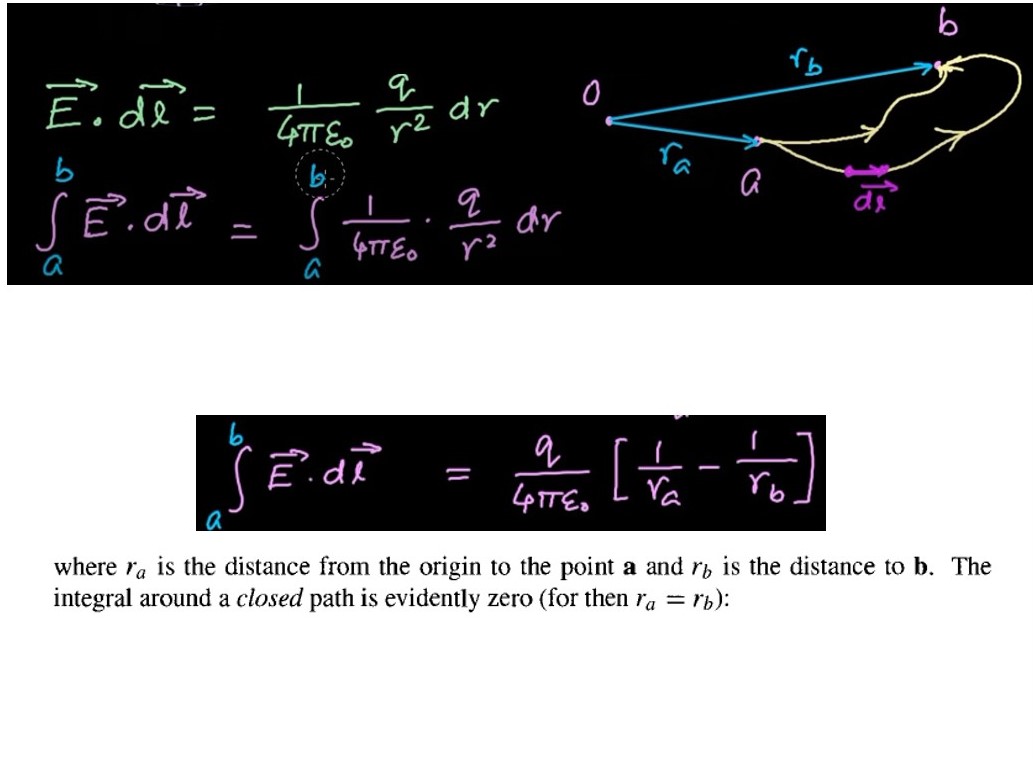 E⃗ . dl⃗ = 1/4πε₀ q/r² dr
∫ₐᵇ E⃗ . dl⃗ = ∫ₐᵇ 1/4πε₀ . q/r² dr
O
r_b
b
r_a
a
dl⃗
∫ₐᵇ E⃗ . dl⃗ = q/4πε₀ [1/r_a - 1/r_b]
where r_a is the distance from the origin to the point a and r_b is the distance to b. The
integral around a closed path is evidently zero (for then r_a = r_b):